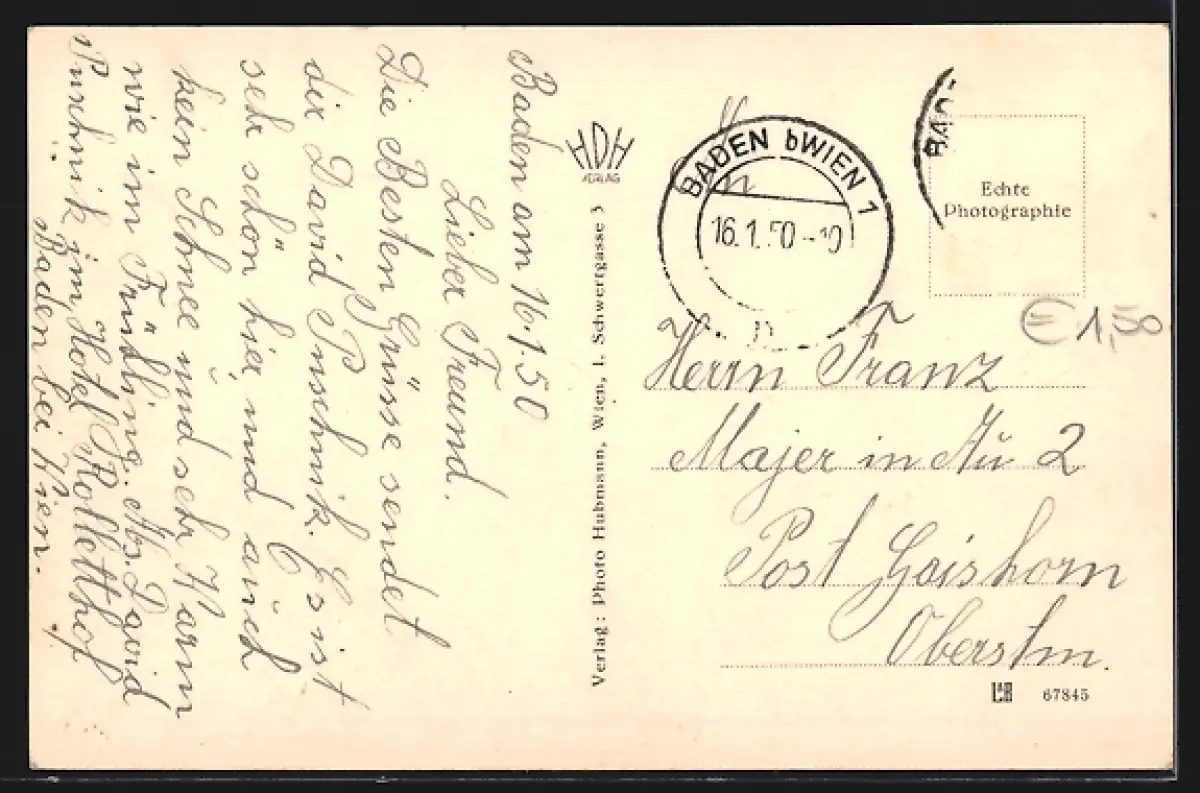 Baden am 16.1.50
Lieber Freund.
Die Besten Grüsse sendet
dir David Puschnik. Es ist
sehr schön hier und auch
kein Schnee und sehr Warm
wie im Frühling. Abs. David
Puschnik im Hotel Rolletthof
Baden bei Wien.
HDH
VERLAG
Verlag: Photo Hubmann, Wien, 1. Schwertgasse 3
BADEN bWIEN 1
16.1.50--10
BAD
Echte
Photographie
€ 1,50
Herrn Franz
Majer in Au 2
Post Gaishorn
Oberstm.
67845